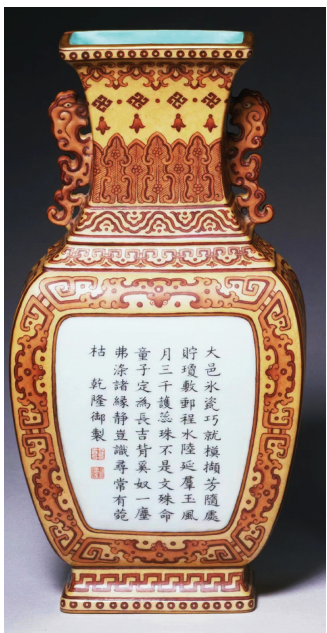 大邑氷瓷巧就模擷芳隨處
貯瓊敷郵程水陸延羣玉風
月三千護蕊珠不是文殊命
童子定為長吉背奚奴一塵
弗染諸緣靜豈識尋常有菀
枯 乾隆御製